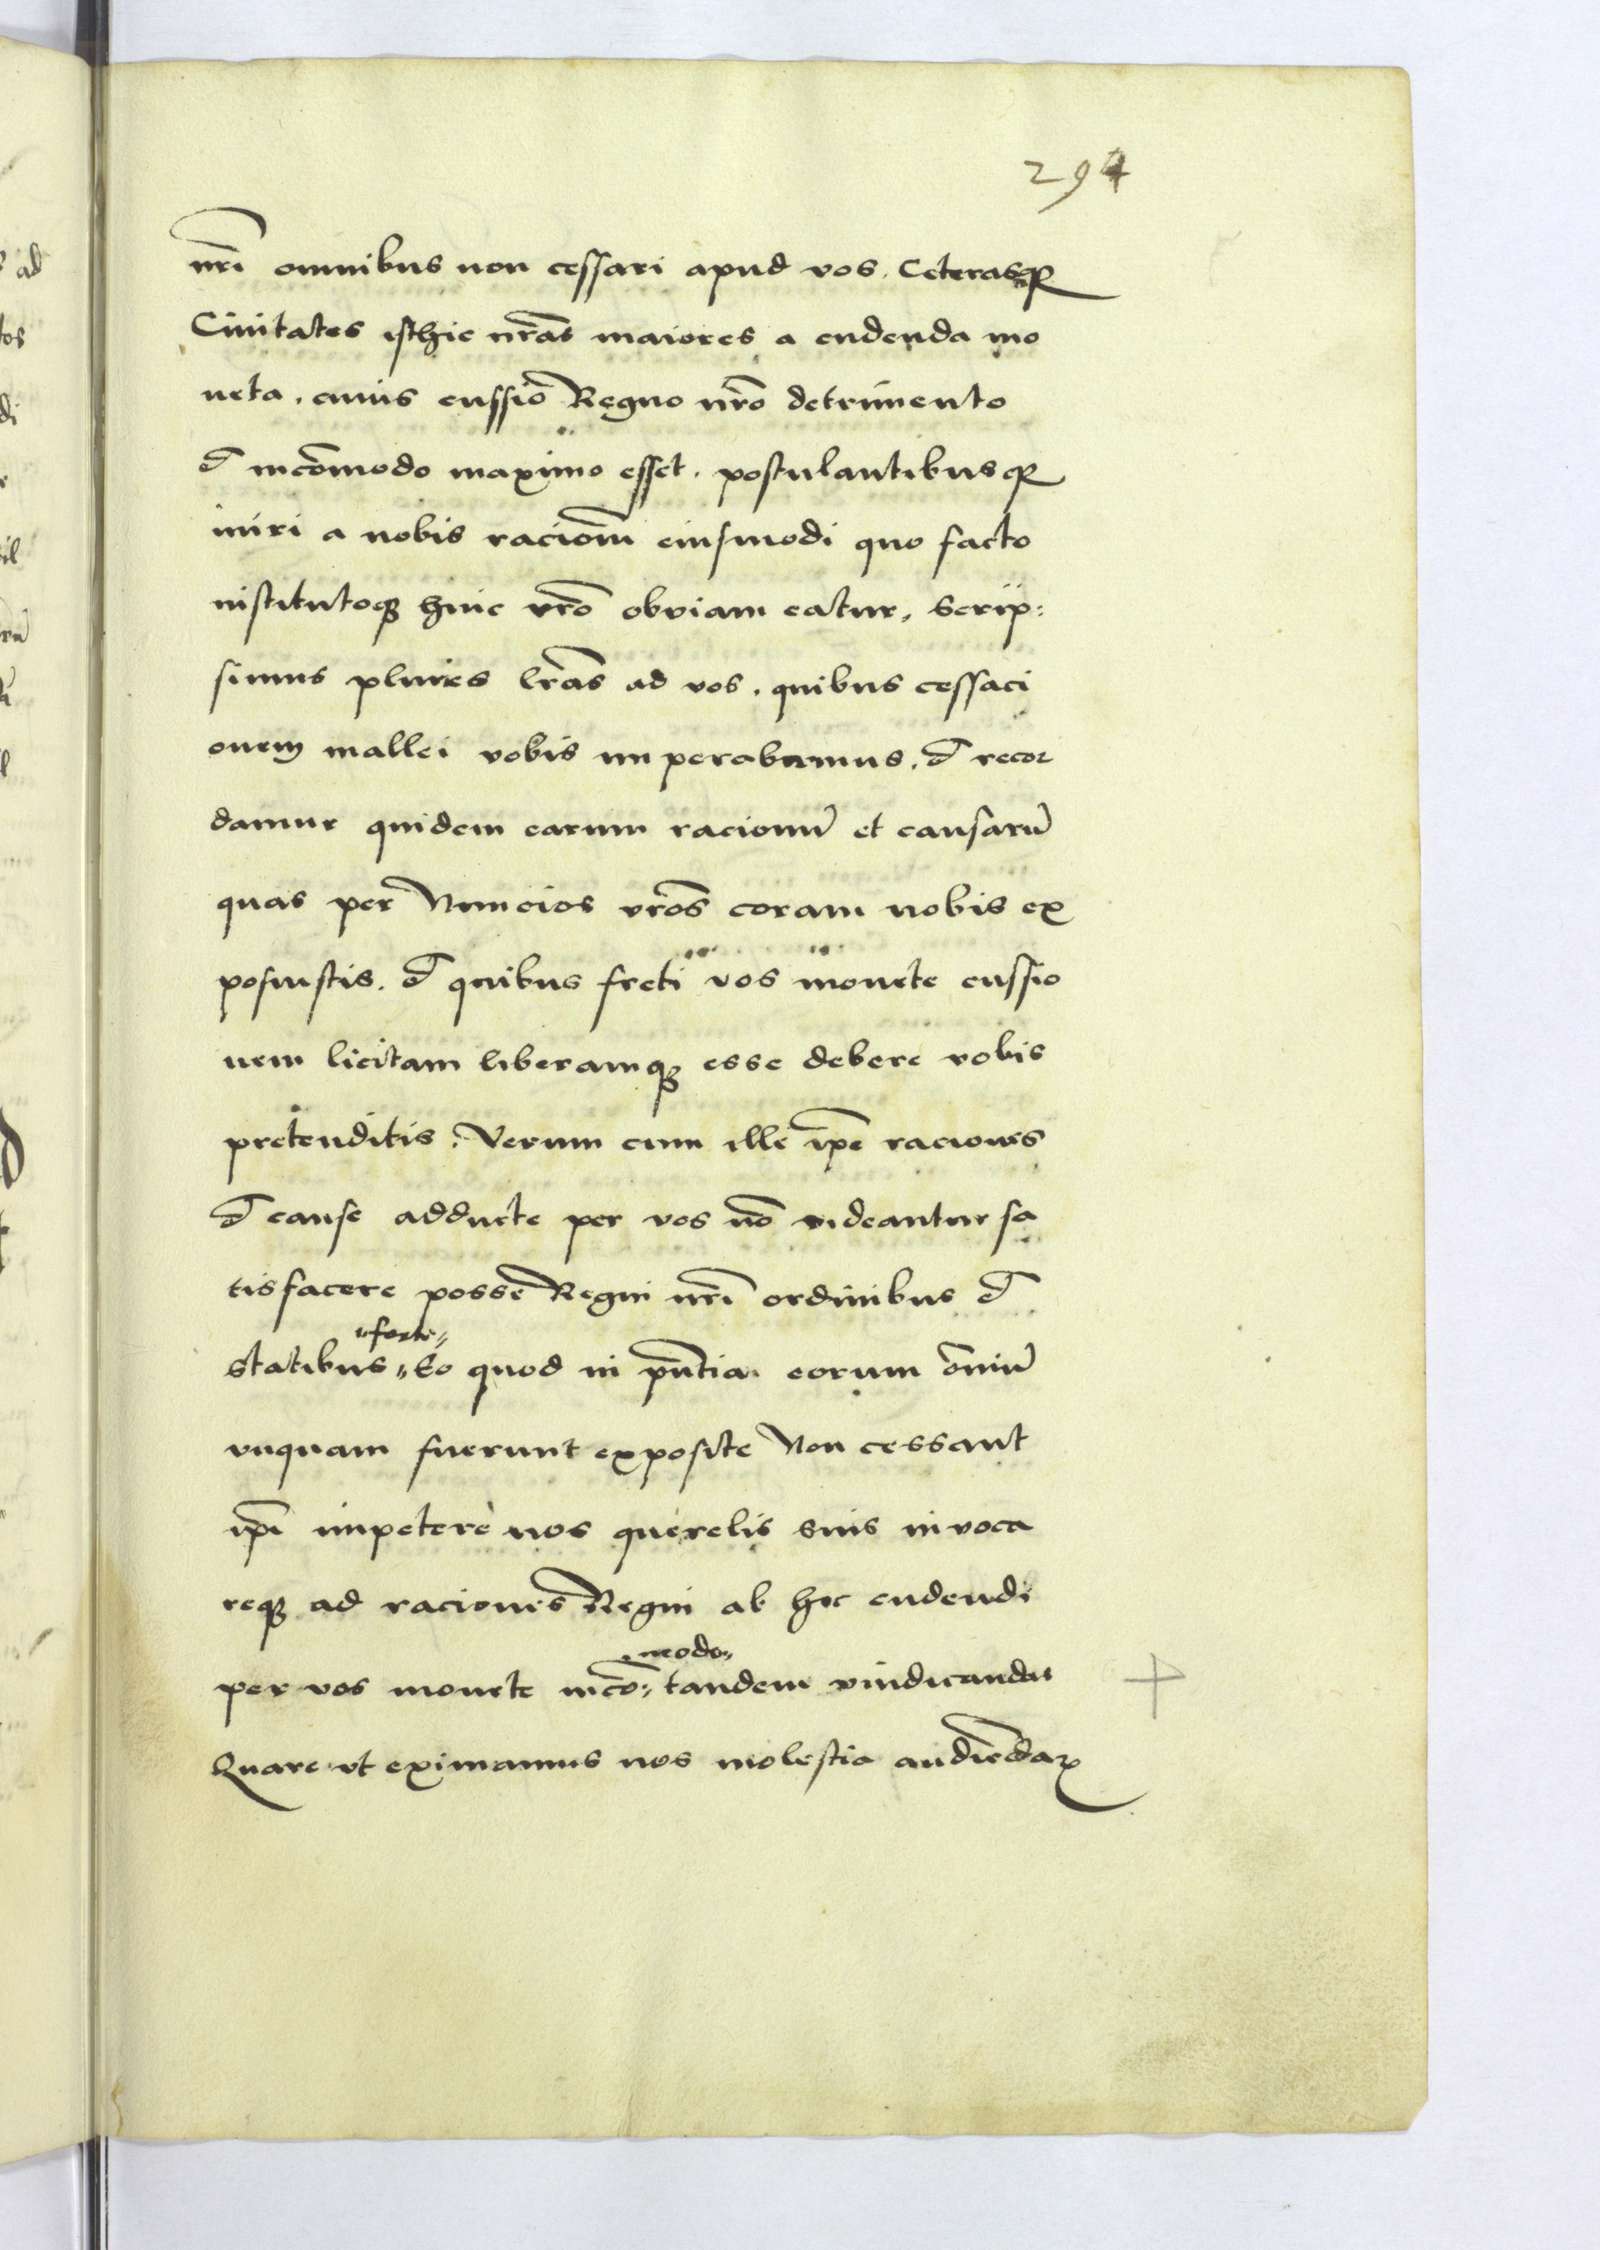 294
nr̃i omnibus non cessari apud vos. Ceterasq3
Ciuitates isthic nr̃as maiores a cudenda mo
neta. cuius cussio Regno nr̃o detrimento
et incõmodo maximo esset. postulantibusq3
iniri a nobis racionẽ eiusmodi quo facto
institutoq3 huic vr̃o obviam eatur, Scrip:
simus plures lr̃as ad vos. quibus cessaci
onem mallei vobis imperabamus. et recor
damur quidem earum racionũ et causarũ
quas per Nuncios vr̃os coram nobis ex
posuistis. et quibus freti vos monete cussio
nem licitam liberamq3 esse debere vobis
pretenditis. Verum cum ille ip̃e raciones
et cause adducte per vos nõ videantur sa
tisfacere posse Regni nr̃i ordinibus et
"forte"
statibus "Eo quod in pñtia eorum om̃iũ
vnquam fuerunt exposite Non cessant
ip̃i impetere nos querelis suis invoca
req3 ad raciones Regni ab hoc cudendi
modo"
per vos monete incõ" tandem vindicandas
Quare vt eximamus nos molestia audiẽdaꝝ